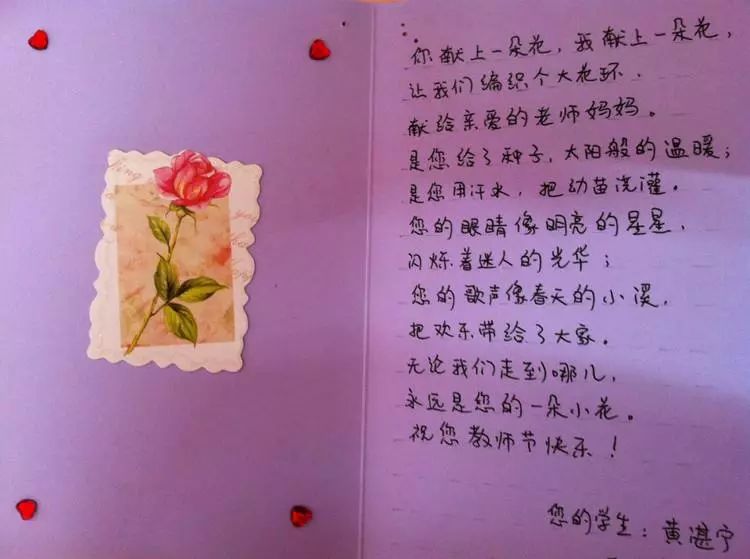 你献上一朵花，我献上一朵花，
让我们编织个大花环．
献给亲爱的老师妈妈。
是您给了种子，太阳般的温暖；
是您用汗水，把幼苗浇灌。
您的眼睛像明亮的星星，
闪烁着迷人的光华；
您的歌声像春天的小溪，
把欢乐带给了大家。
无论我们走到哪儿，
永远是您的一朵小花。
祝您教师节快乐！
您的学生：黄湛宁